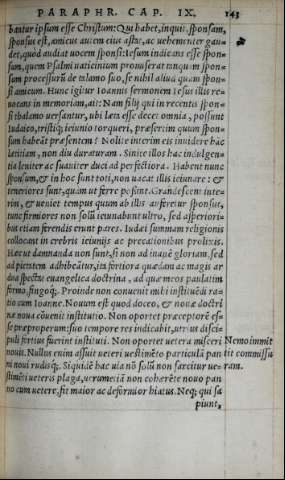 PARAPHR. CAP. IX. 143
bantur ipsum esse Christum: Qui habet, inquit, sponsam,
sponsus est, amicus autem eius astat, ac vehementer gau
det, quòd audiat vocem sponsi: Iesum indicans esse spon-
sum, quem Psalmi vaticinium promiserat tanquam spon-
sum processurũ de talamo suo, se nihil aliud quàm spon-
si amicum. Hunc igitur Ioannis sermonem Iesus illis re-
vocans in memoriam, ait: Nam filij qui in recentis spon-
si thalamo versantur, ubi læta esse decet omnia, possunt
Iudaico, tristiq́; ieiunio torqueri, præsertim quum spon-
sum habeãt præsentem? Nolite interim eis invidere hãc
lætitiam, non diu duraturam. Sinite illos hac indulgen-
tia leniter ac suaviter duci ad perfectiora. Habent nunc
sponsum, & in hoc sunt toti, non vacat illis ieiunare: &
teneriores sunt, quàm ut ferre possint. Grandescent inte-
rim, & veniet tempus quum ab illis auferetur sponsus,
tunc firmiores non solũ ieiunabunt ultro, sed asperiori-
bus etiam ferendis erunt pares. Iudæi summam religionis
collocant in crebris ieiunijs ac precationibus prolixis.
Hæc ut damnanda non sunt, si non ad inanẽ gloriam, sed
ad pietatem adhibeãtur, ita fortiora quædam ac magis ar
dua spectat euangelica doctrina, ad quæ meos paulatim
formo, fingoq́;. Proinde non convenit mihi instituẽdi ra-
tio cum Ioanne. Novum est quod doceo, & novæ doctri
næ nova cõvenit institutio. Non oportet præceptorẽ es-
se præproperum: suo tempore res indicabit, utrius disci-
puli fortius fuerint instituti. Non oportet vetera misceri Nemo immit
novis. Nullus enim assuit veteri vestimẽto particulã pan tit commissu
ni novi rudisq́;. Siquidẽ hac viã nõ solũ non sarcitur ve- ram.
stimẽti veteris plaga, verumetiã non cohærẽte novo pan
no cum vetere, fit maior ac deformior hiatus. Neq; qui sa
piunt,